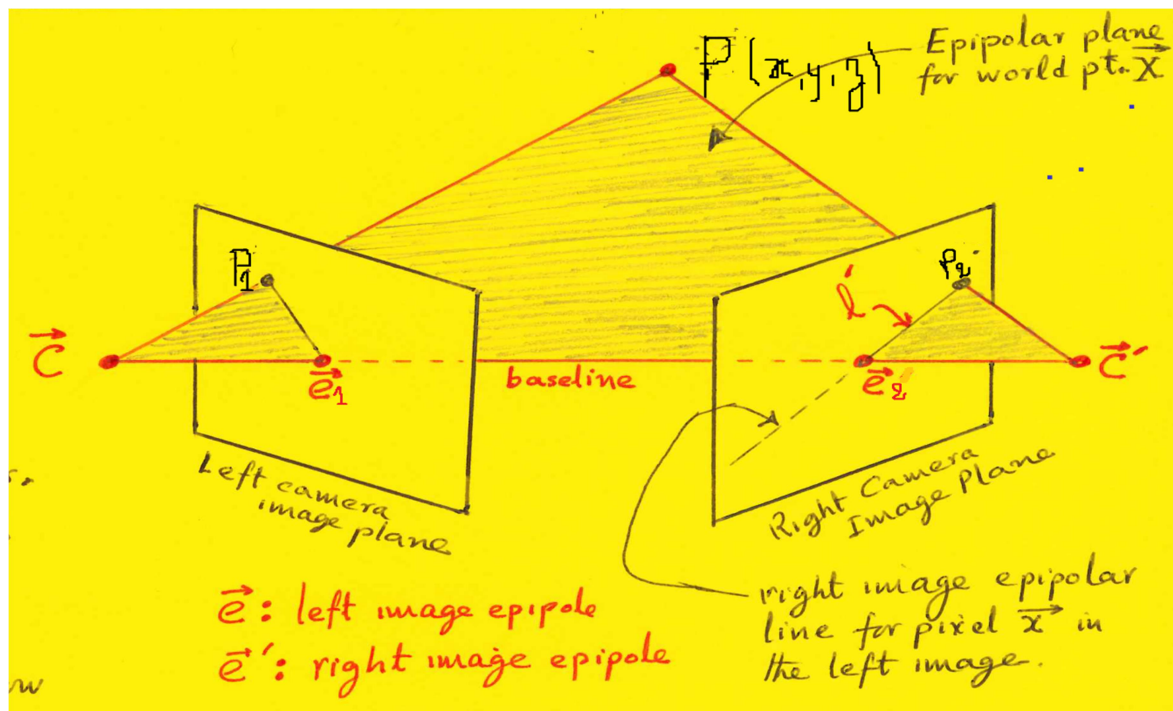 P(x,y,z)
Epipolar plane
for world pt. X⃗
P1
P2
l'
C⃗
e⃗1
baseline
e⃗2
C⃗'
Left camera
image plane
Right Camera
Image Plane
e⃗: left image epipole
e⃗': right image epipole
right image epipolar
line for pixel x⃗ in
the left image.
w